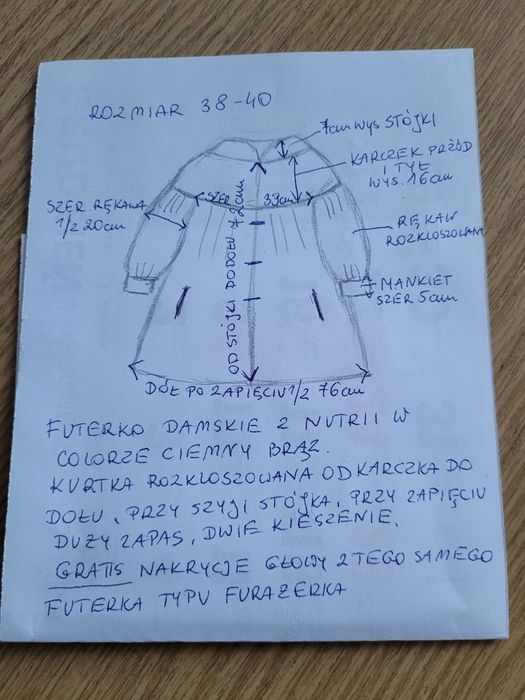 ROZMIAR 38-40
7cm WYS STÓJKI
KARCZEK PRZÓD
I TYŁ
WYS. 16cm
SZER RĘKAWA
1/2 20cm
SZER 39cm
OD STÓJKI DO DOŁU 72cm
RĘKAW
ROZKLOSZOWANY
MANKIET
SZER 5cm
DÓŁ PO ZAPIĘCIU 1/2 76cm
FUTERKO DAMSKIE Z NUTRII W
COLORZE CIEMNY BRĄZ.
KURTKA ROZKLOSZOWANA OD KARCZKA DO
DOŁU, PRZY SZYJI STÓJKA, PRZY ZAPIĘCIU
DUŻY ZAPAS, DWIE KIESZENIE.
GRATIS NAKRYCJE GŁOWY Z TEGO SAMEGO
FUTERKA TYPU FURAŻERKA